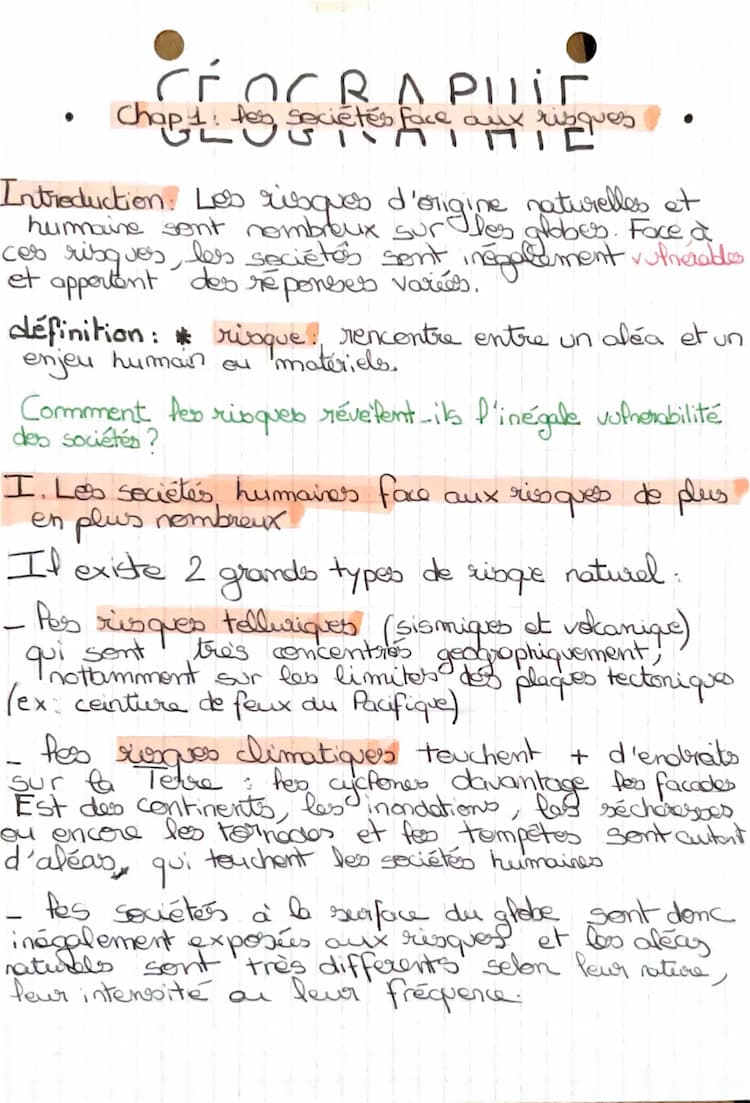 GÉOGRAPHIE
• Chap 1: les sociétés face aux risques •
Introduction: Les risques d'origine naturelles et
humaine sont nombreux sur les globes. Face à
ces risques, les sociétés sont inégalement vulnérables
et apportent des réponses variés.
définition: * risque: rencontre entre un aléa et un
enjeu humain ou matériels.
Commment les risques révèlent-ils l'inégale vulnerabilité
des sociétés ?
I. Les sociétés humaines face aux risques de plus
en plus nombreux
Il existe 2 grands types de risque naturel:
- les risques telluriques (sismiques et volcanique)
qui sont très concentrés geographiquement,
nottamment sur les limites des plaques tectoniques
(ex: ceinture de feux du Pacifique)
- les risques climatiques touchent + d'endroits
sur la Terre : les cyclones davantage les facades
Est des continents, les inondations, les sécheresses
ou encore les tornades et les tempêtes sont autant
d'aléas, qui touchent les sociétés humaines
- les sociétés à la surface du globe sont donc
inégalement exposées aux risques et les aléas
naturels sont très differents selon leur nature,
leur intensité ou leur fréquence.